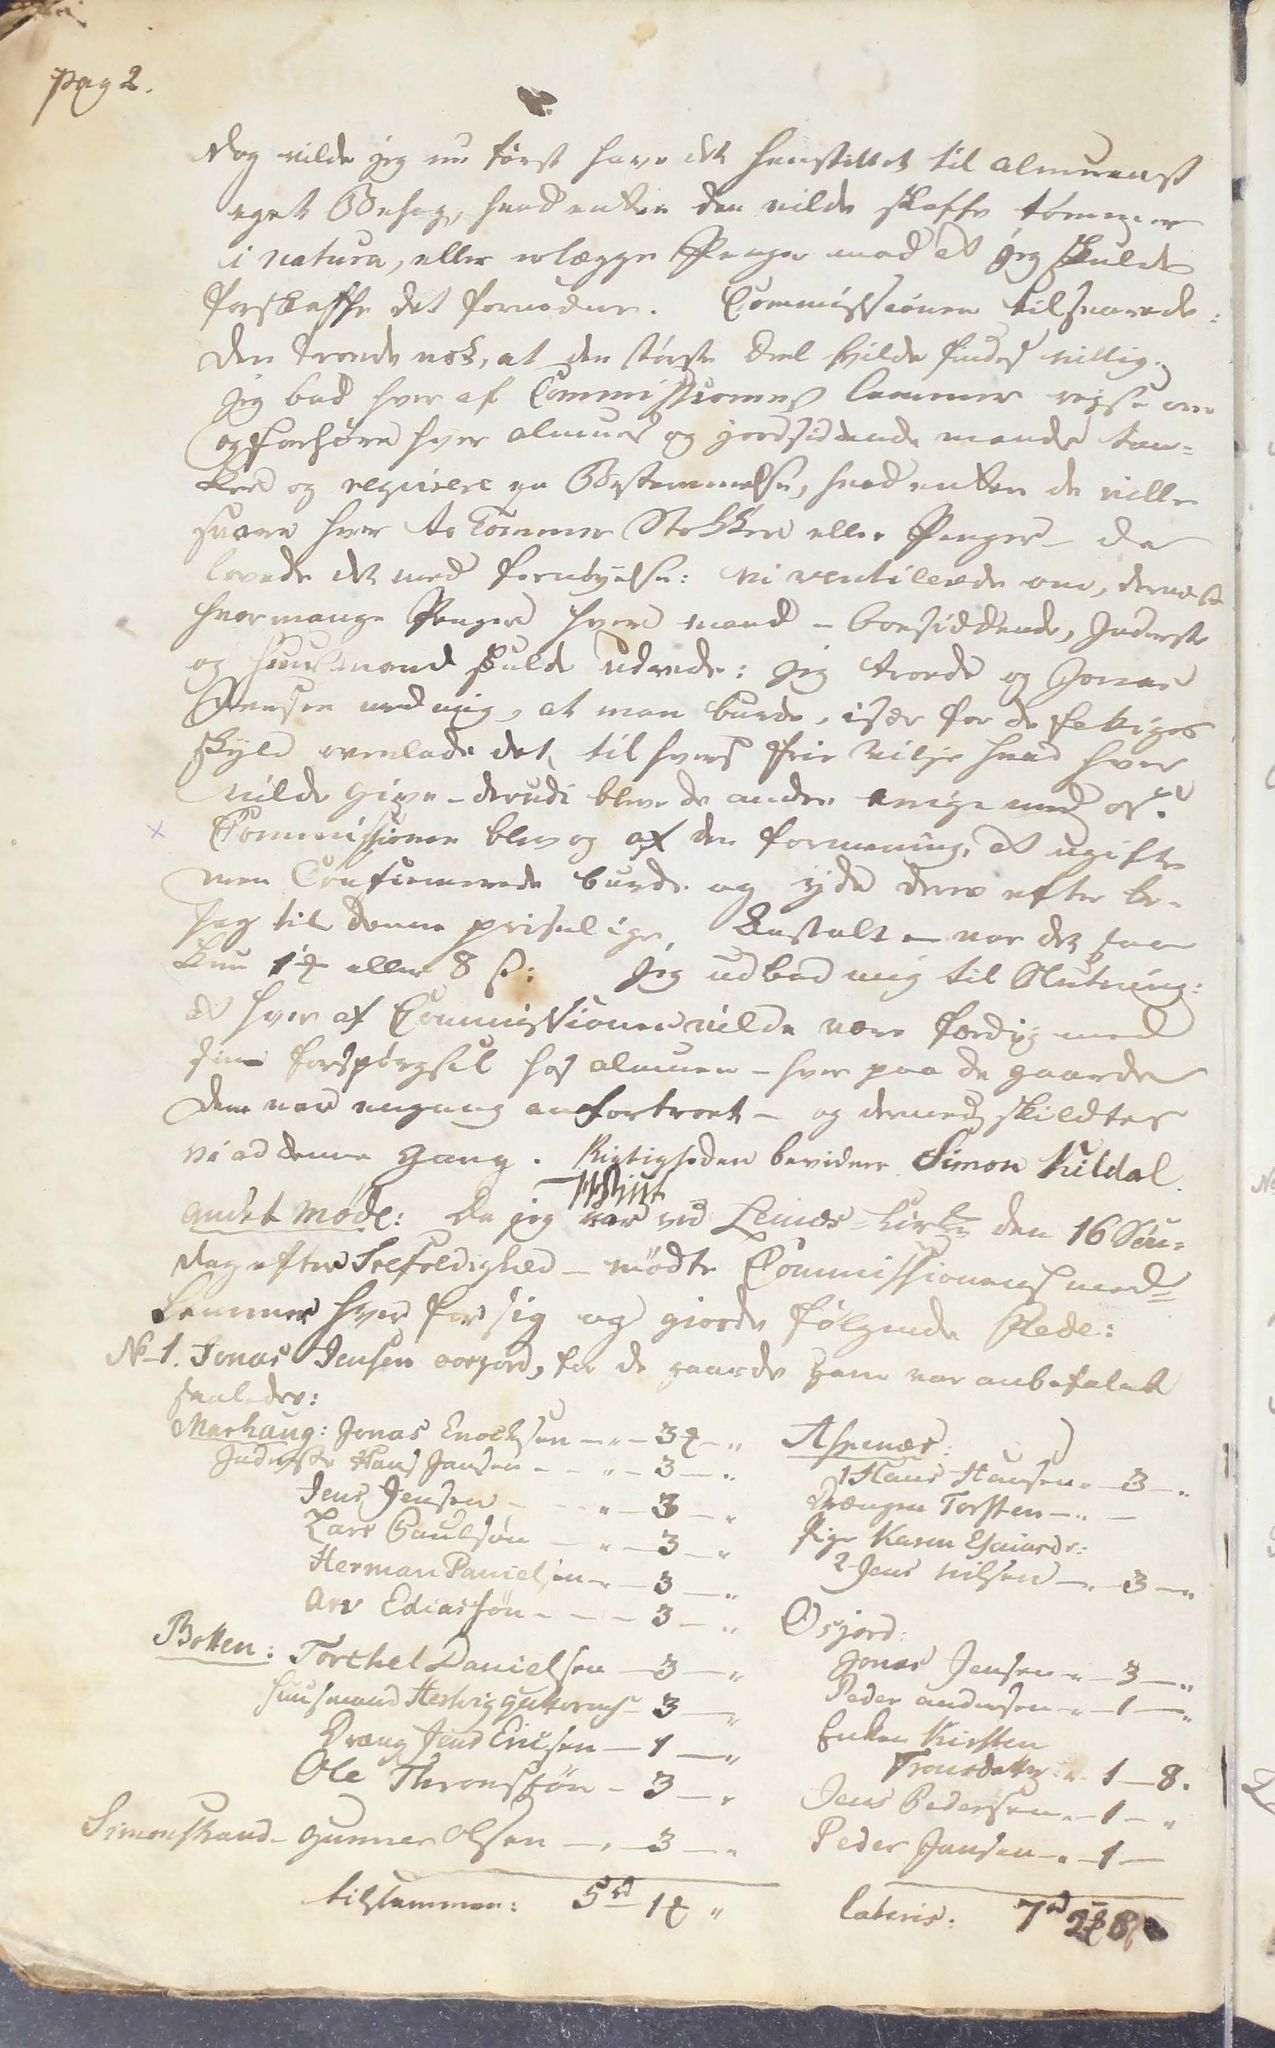 Pag 2.
Dog vilde jeg nu først have det henstillet til almuens
eget Behag, hvad enten den vilde skaffe tømmer
i natura, eller erlægge Penger mod at jeg skulde
forskaffe det fornødne. Commissionen tilsvarede:
den troede nok, at den største deel skilde findes villig.
Jeg bad hver af Commissionens lemmer reyse om
og forhøre hver almues og jordsiddende mands tan-
ker og reqvirere en Bestemmelse, hvad enten de ville
svare hver to Tømmer Stokker eller Penger - de
lovede det med fornøyelse: Vi ventilerede om, dernæst
hvormange Penger hver mand - boesiddende, Inderste
og huusmand skulde udrede: Jeg troede og Jonas
Jensen med mig, at man burde, især for de fattiges
skyld overlade det til hvers frie Vilje hvad hver
vilde give - derudi bleve de andre enige med os.
Commissionen blev og af den formening, at ugifte
men Confirmerede burde og yde dere efter be-
hag til denne priselige Anstalt - var det saa
kun 1 ℔ eller 8 s: Jeg udbad mig til Slutning:
at hver af Commissionen vilde være færdig med
sine forspørgsel hos almuen - hver paa de gaarde
dem var engang anfortroet - og dermed skildtes
vi ad denne Gang. Rigtigheden bevidner Simon Kildal.
Andet Møde: Da jeg var ved Lenvis-Kirke den 16 Søn-
dag efter Trefoldighed - mødte Commissionens med-
Lemmer hver for sig og giorde følgende Rede:
No 1. Jonas Jensen oosjord, for de gaarde ham var anbefalet
saaledes:
Marhaug: Jonas Enochsen - " - 3 ℔ - "
Inderste Hans Jansen - " - 3 - "
Jens Jensen - " - 3 - "
Lars Paulsøn - " - 3 - "
Herman Danielsen - 3 - "
Arv Ediassøn - - - 3 - "
Botten: Torchel Danielsen - 3 - "
huusmand Hertvig - 3 - "
Dreng Jens Ericsen - 1 - "
Ole Thronssøn - 3 - "
Simonstrand - Gunner Olsen - " - 3 - "
tilsammen: 5 rd 1 ℔ "
Aspenæs:
1 Hans Hansen " - 3 - "
Drængen Torsten - " -
Pige Karen
2 Jens Nilsen - " - 3 - "
Osjord:
Jonas Jensen " - 3 - "
Peder andersen " - 1 - "
Enken Kirsten
Tronsdatter " 1 - 8.
Jens Pedersen " - 1 - "
Peder Jansen - " - 1 -
lateris: 7 rd 2 ℔ 8